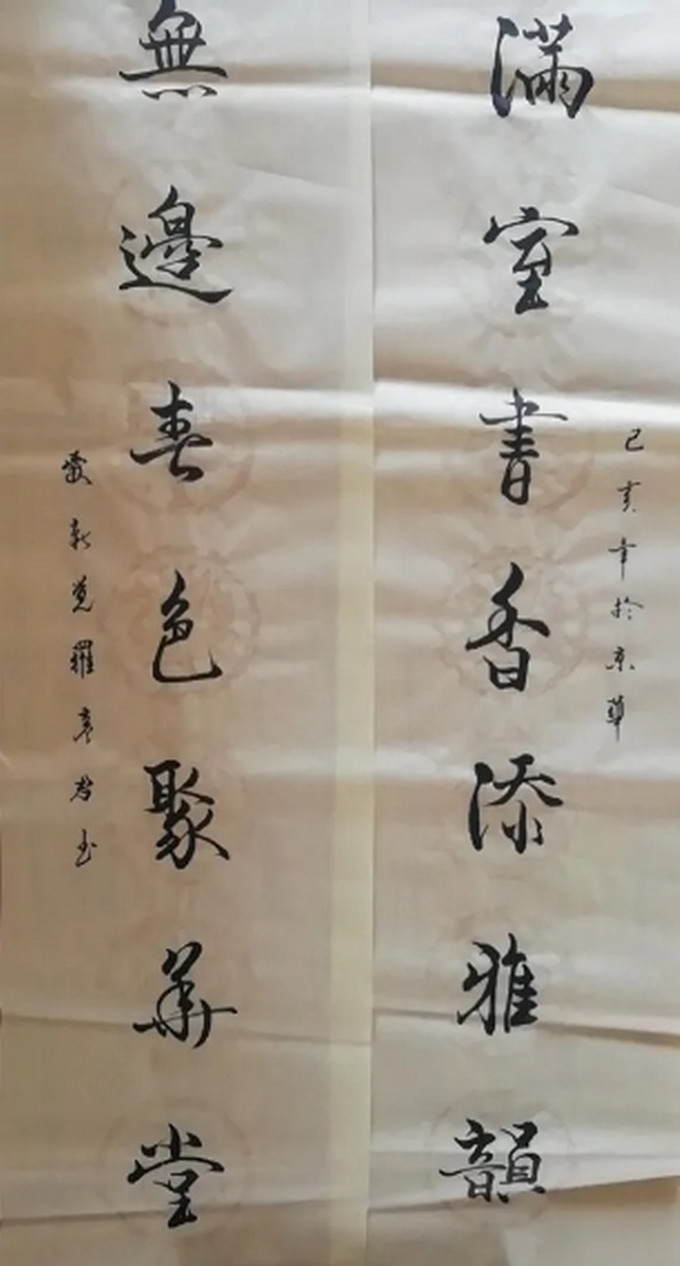 己亥年於京華
滿室書香添雅韻
無邊春色聚華堂
愛新覺羅彥君書